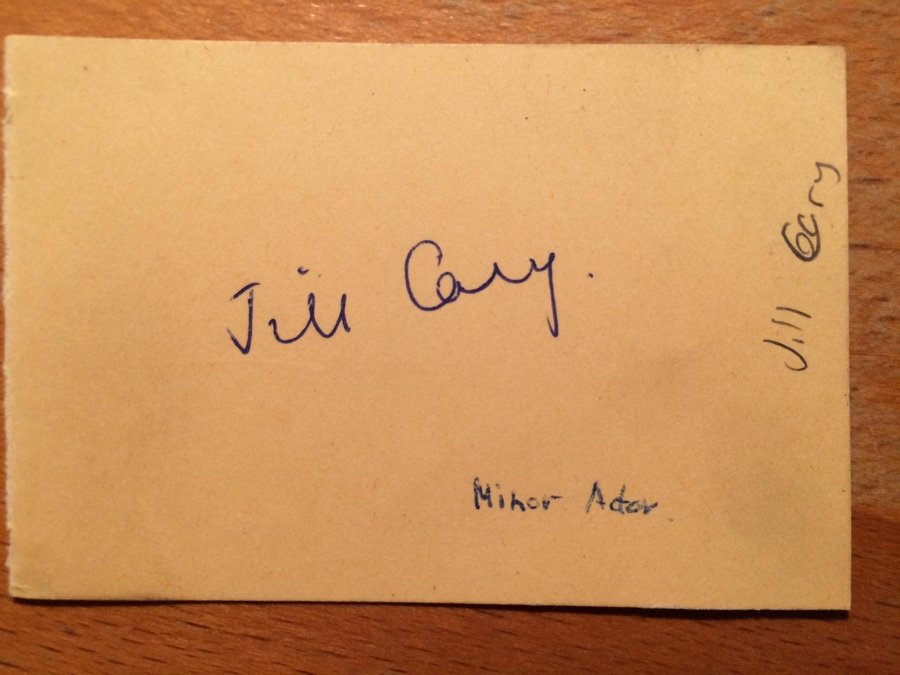 Jill Cary.
Minor Actor
Jill Cary